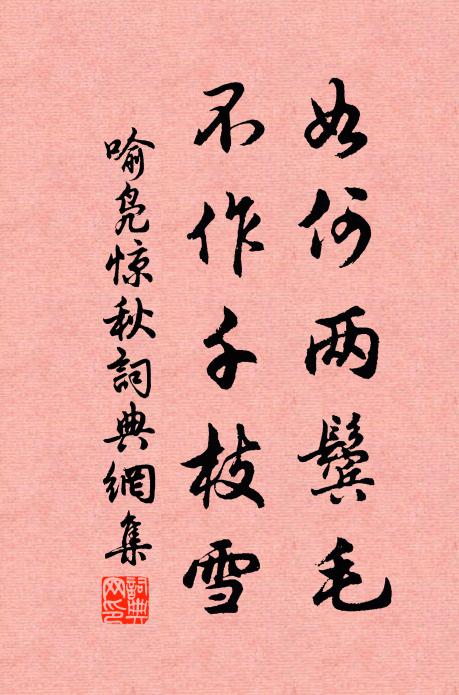 如何两鬓毛
不作千枝雪
喻凫惊秋詞典網集
詞典網印